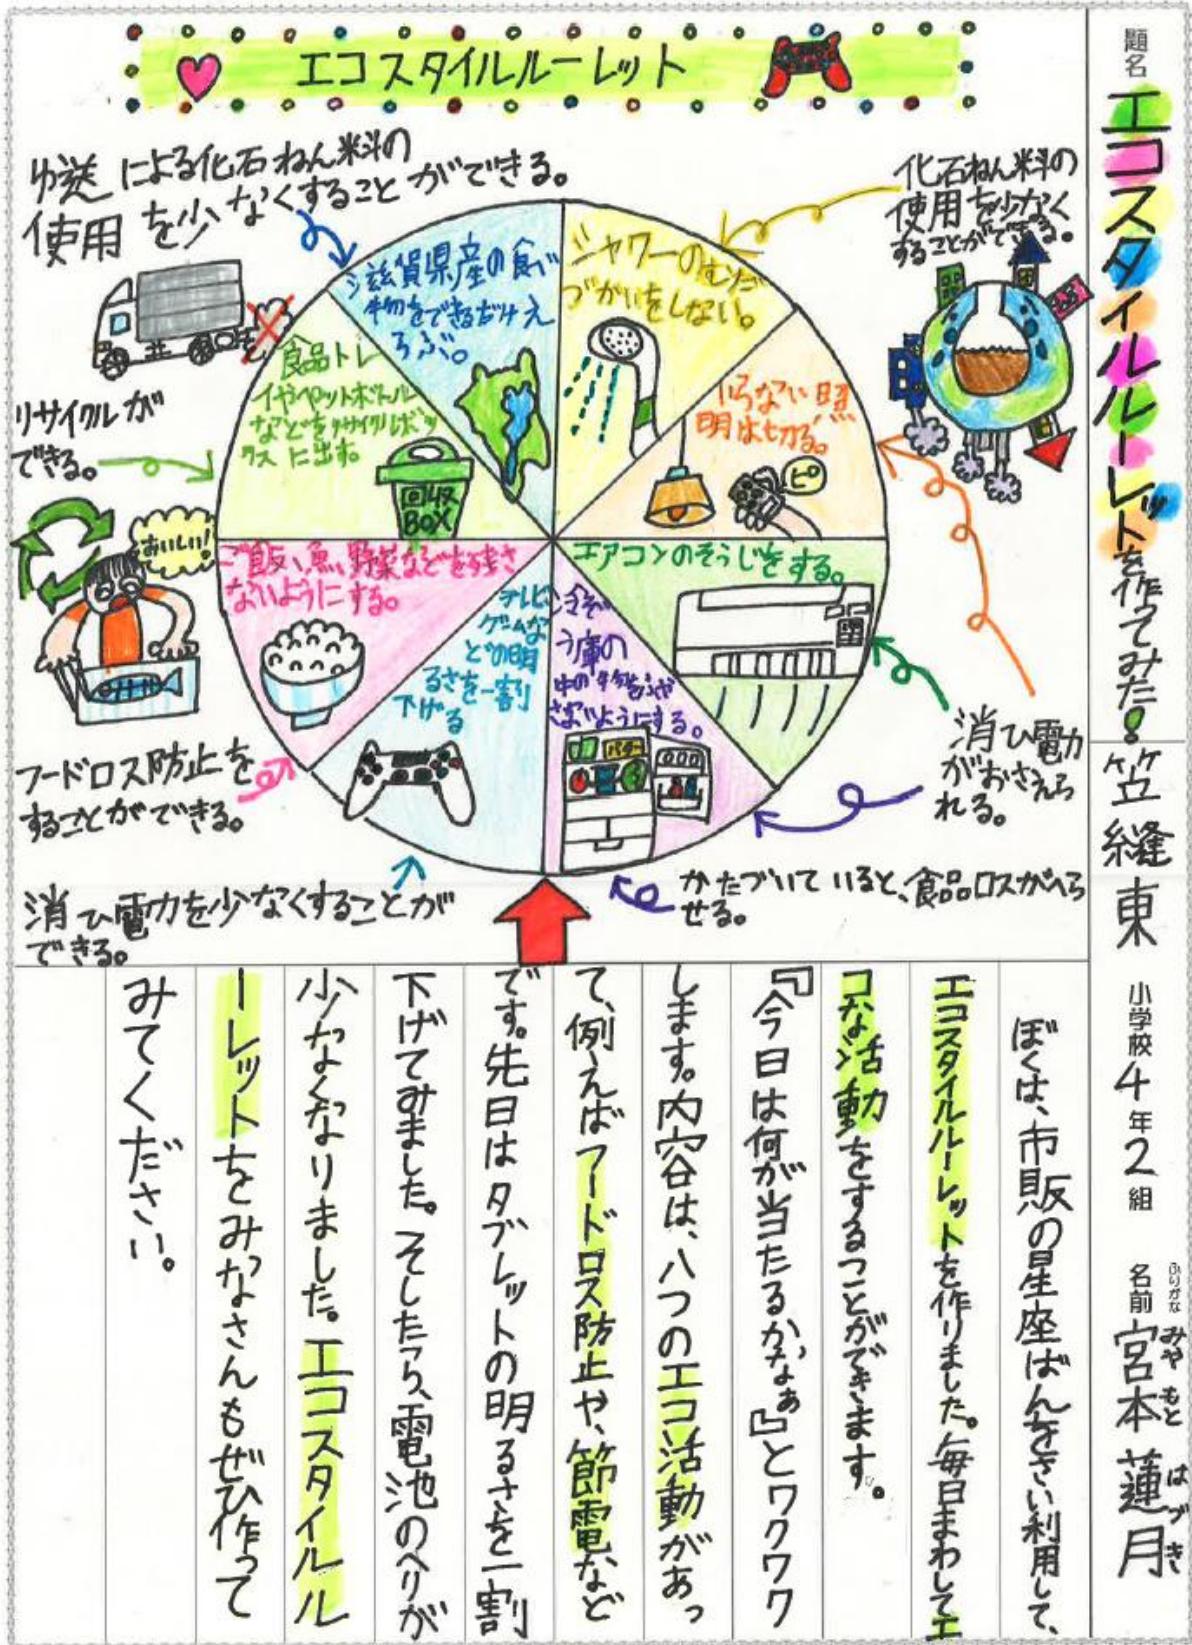 題名
エコスタイルルーレットを作ってみた!
笠縫東
小学校4年2組
ふりがな みやもと はづき
名前 宮本 蓮月
エコスタイルルーレット
ゆ送による化石ねん料の
使用を少なくすることができる。
化石ねん料の
使用を少なく
することができる。
滋賀県産の食べ
物をできるだけえ
らぶ。
シャワーのむだ
づかいをしない。
いらない照
明は切る。
ピ
食品トレ
イやペットボトル
などをリサイクルボッ
クスに出す。
回収
BOX
リサイクルが
できる。
おいしい!
ご飯、魚、野菜などを残さ
ないようにする。
エアコンのそうじをする。
テレビ、
ゲームな
どの明
るさを一割
下げる
冷ぞ
う庫の
中の物をふや
さないようにする。
バター
消ひ電力
がおさえら
れる。
フードロス防止を
することができる。
消ひ電力を少なくすることが
できる。
かたづいていると、食品ロスがへら
せる。
ぼくは、市販の星座ばんをさい利用して、
エコスタイルルーレットを作りました。毎日まわしてエ
コな活動をすることができます。
『今日は何が当たるかなぁ』とワクワク
します。内容は、八つのエコ活動があっ
て、例えばフードロス防止や、節電など
です。先日はタブレットの明るさを一割
下げてみました。そしたら、電池のへりが
少なくなりました。エコスタイルル
ーレットをみなさんもぜひ作って
みてください。